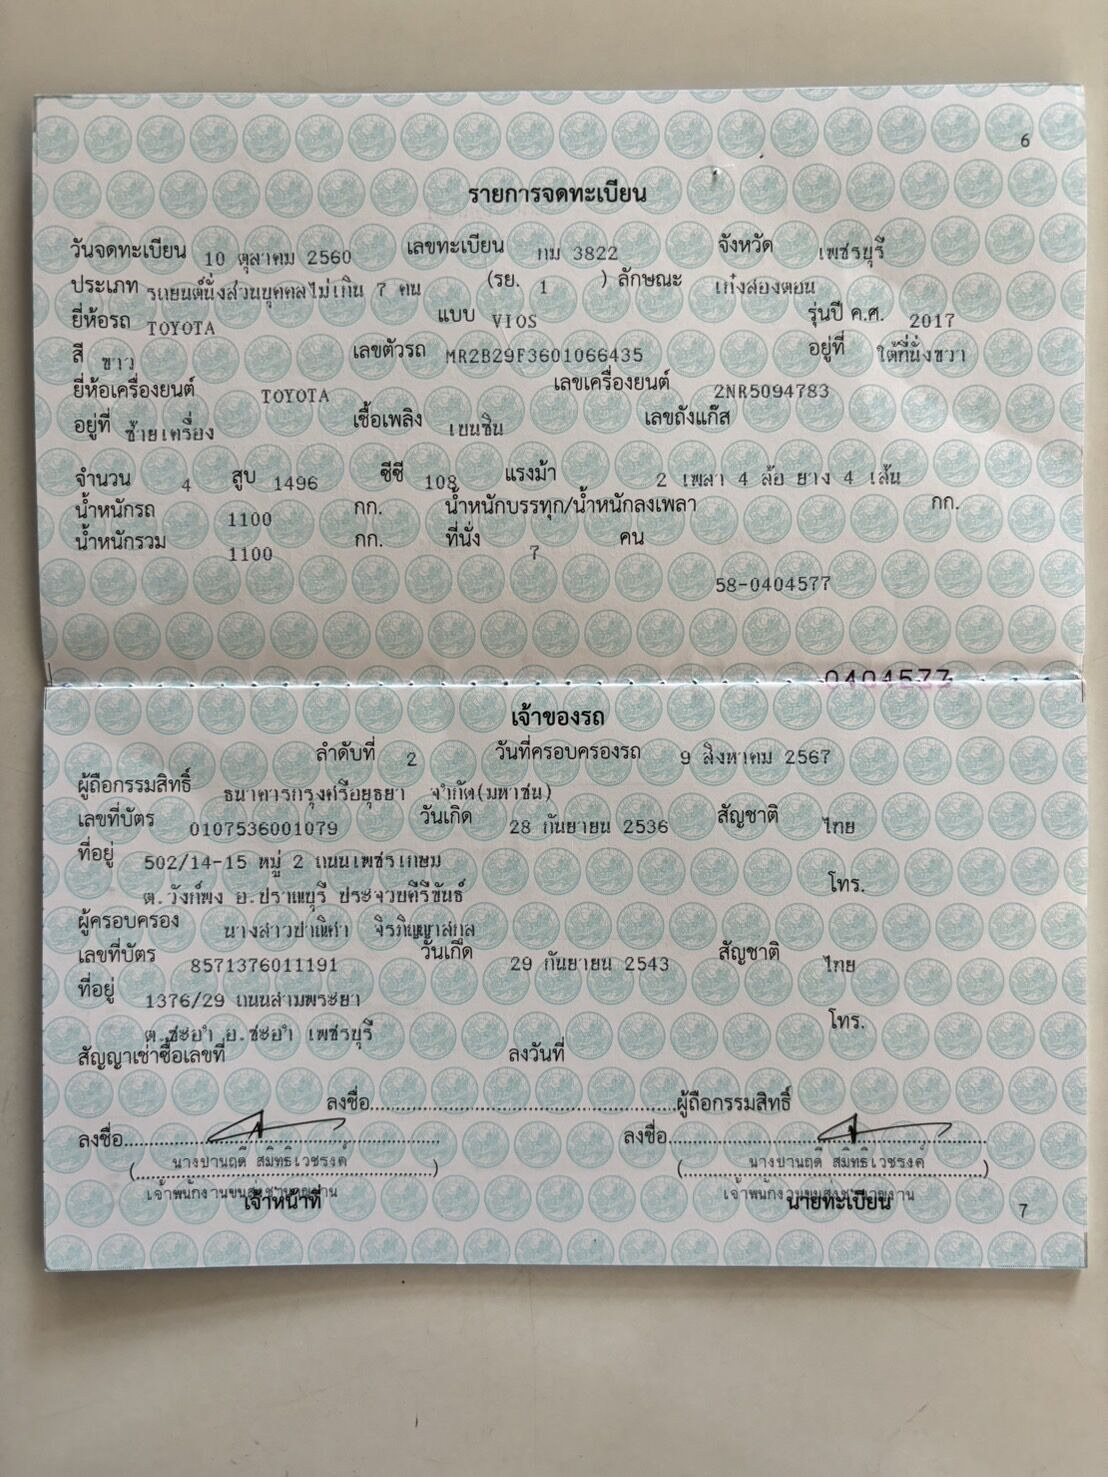 6
รายการจดทะเบียน
วันจดทะเบียน 10 ตุลาคม 2560 เลขทะเบียน กม 3822 จังหวัด เพชรบุรี
ประเภท รถยนต์นั่งส่วนบุคคลไม่เกิน 7 คน (รย. 1 ) ลักษณะ เก๋งสองตอน
ยี่ห้อรถ TOYOTA แบบ VIOS รุ่นปี ค.ศ. 2017
สี ขาว เลขตัวรถ MR2B29F3601066435 อยู่ที่ ใต้ที่นั่งขวา
ยี่ห้อเครื่องยนต์ TOYOTA เลขเครื่องยนต์ 2NR5094783
อยู่ที่ ซ้ายเครื่อง เชื้อเพลิง เบนซิน เลขถังแก๊ส
จำนวน 4 สูบ 1496 ซีซี 108 แรงม้า 2 เพลา 4 ล้อ ยาง 4 เส้น
น้ำหนักรถ 1100 กก. น้ำหนักบรรทุก/น้ำหนักลงเพลา กก.
น้ำหนักรวม 1100 กก. ที่นั่ง 7 คน
58-0404577
0404577
เจ้าของรถ
ลำดับที่ 2 วันที่ครอบครองรถ 9 สิงหาคม 2567
ผู้ถือกรรมสิทธิ์ ธนาคารกรุงศรีอยุธยา จำกัด(มหาชน)
เลขที่บัตร 0107536001079 วันเกิด 28 กันยายน 2536 สัญชาติ ไทย
ที่อยู่ 502/14-15 หมู่ 2 ถนนเพชรเกษม
ต.วังก์พง อ.ปราณบุรี ประจวบคีรีขันธ์ โทร.
ผู้ครอบครอง นางสาวปาณิศา จิรภิญญาสกุล
เลขที่บัตร 8571376011191 วันเกิด 29 กันยายน 2543 สัญชาติ ไทย
ที่อยู่ 1376/29 ถนนสามพระยา
ต.ชะอำ อ.ชะอำ เพชรบุรี โทร.
สัญญาเช่าซื้อเลขที่ ลงวันที่
ลงชื่อ ผู้ถือกรรมสิทธิ์
ลงชื่อ ลงชื่อ
(นางปานฤดี สมิทธิเวชรงค์) (นางปานฤดี สมิทธิเวชรงค์)
เจ้าพนักงานขนส่งชำนาญงาน เจ้าพนักงานขนส่งชำนาญงาน
เจ้าหน้าที่ นายทะเบียน
7